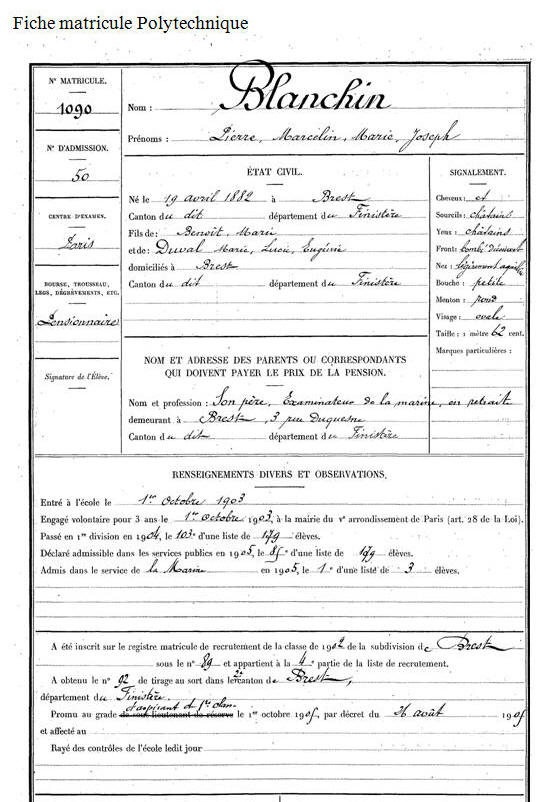 Fiche matricule Polytechnique
N° MATRICULE.
1090
N° D'ADMISSION.
50
CENTRE D'EXAMEN.
Paris
BOURSE, TROUSSEAU,
LEGS, DÉGRÈVEMENTS, ETC.
Pensionnaire
Signature de l'Élève.
Nom : Blanchin
Prénoms : Pierre, Marcelin, Marie, Joseph
ÉTAT CIVIL.
Né le 19 avril 1882 à Brest
Canton du dit département du Finistère
Fils de : Benoît, Marie
et de : Duval Marie, Lucie, Eugénie
domiciliés à Brest
Canton du dit département du Finistère
SIGNALEMENT.
Cheveux : et
Sourcils : châtains
Yeux : châtains
Front : bombé découvert
Nez : légèrement aquilin
Bouche : petite
Menton : rond
Visage : ovale
Taille : 1 mètre 62 cent.
Marques particulières :
NOM ET ADRESSE DES PARENTS OU CORRESPONDANTS
QUI DOIVENT PAYER LE PRIX DE LA PENSION.
Nom et profession : Son père, Examinateur de la marine, en retrait
demeurant à Brest, 3 rue Duquesne
Canton du dit département du Finistère
RENSEIGNEMENTS DIVERS ET OBSERVATIONS.
Entré à l'école le 1er Octobre 1903
Engagé volontaire pour 3 ans le 1er Octobre 1903, à la mairie du Ve arrondissement de Paris (art. 28 de la Loi).
Passé en 1re division en 1904, le 103e d'une liste de 179 élèves.
Déclaré admissible dans les services publics en 1905, le 85e d'une liste de 179 élèves.
Admis dans le service de la Marine en 1905, le 1er d'une liste de 3 élèves.
A été inscrit sur le registre matricule de recrutement de la classe de 1902 de la subdivision de Brest
sous le n° 89 et appartient à la 4e partie de la liste de recrutement.
A obtenu le n° 92 de tirage au sort dans le 2e canton de Brest,
département du Finistère.
d'aspirant de 1re clas.
Promu au grade de sous-lieutenant de réserve le 1er octobre 1905, par décret du 26 août 1905
et affecté au
Rayé des contrôles de l'école ledit jour